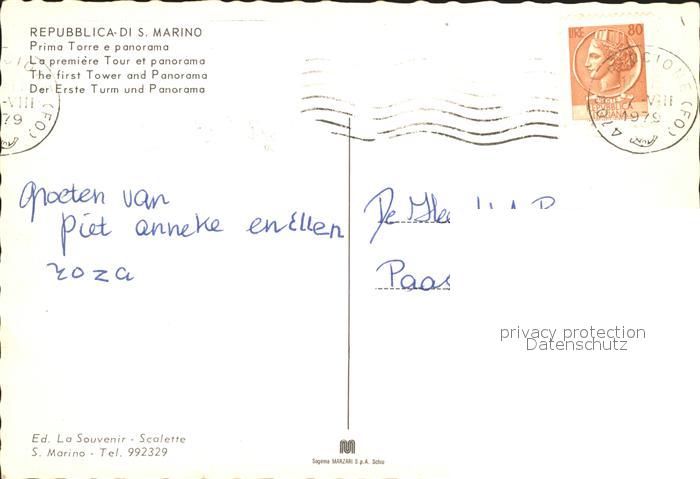 REPUBBLICA DI S. MARINO
Prima Torre e panorama
La première Tour et panorama
The first Tower and Panorama
Der Erste Turm und Panorama
LIRE 80
REPUBBLICA
ITALIANA
CIONE (FO)
-VIII
1979
groeten van
Piet anneke en Ellen
roza
De Hee
Paas
privacy protection
Datenschutz
Ed. La Souvenir - Scalette
S. Marino - Tel. 992329
Sagema MARZARI S.p.A. Schio